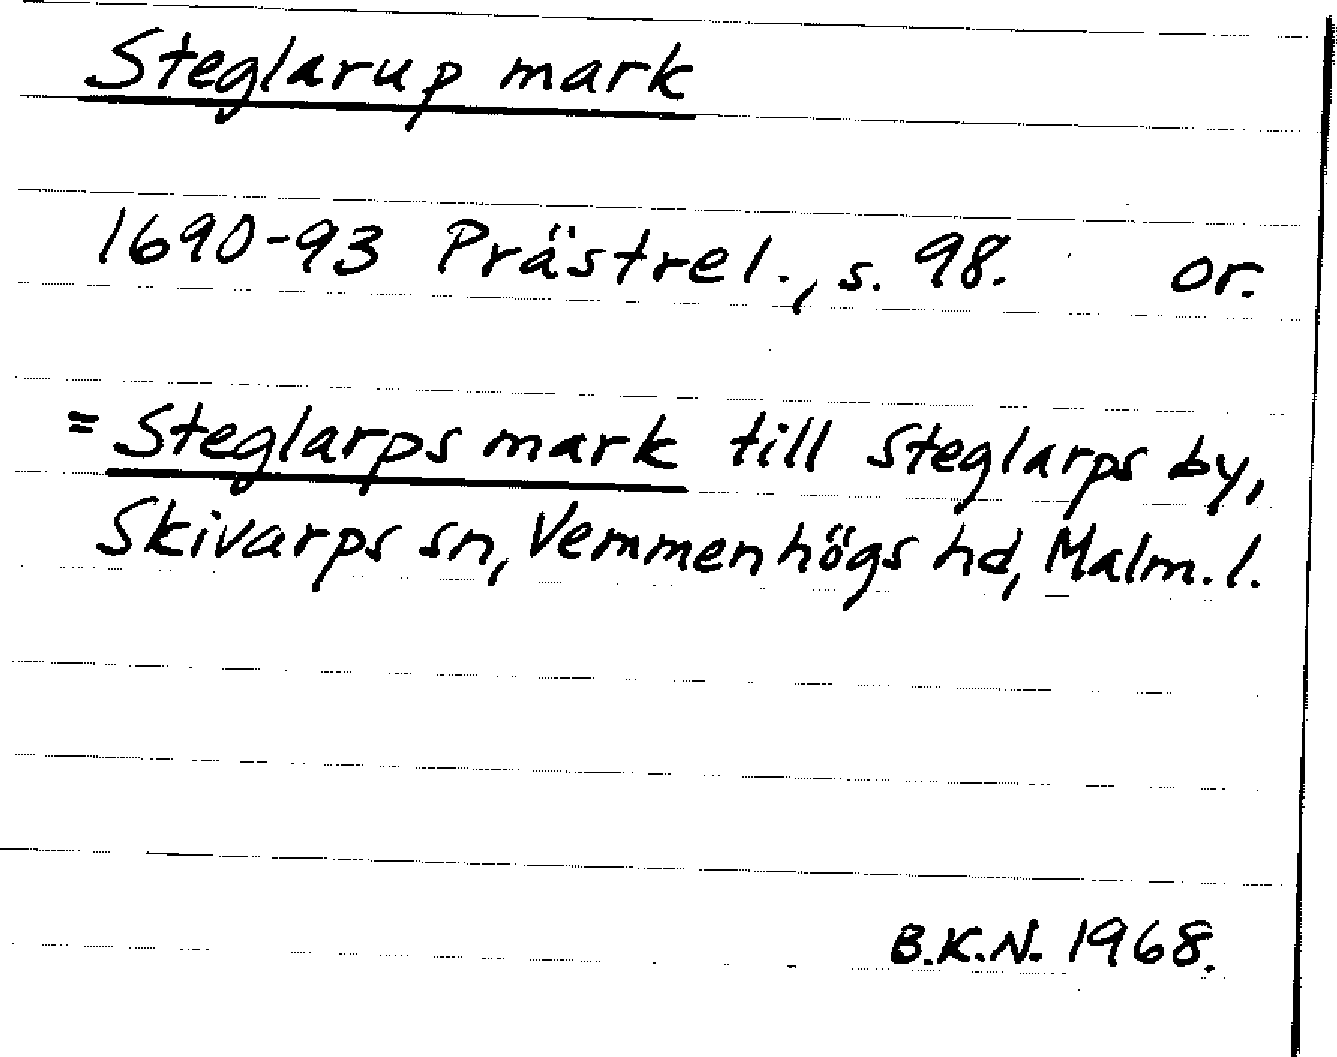 Steglarup mark
1690-93 Prästrel., s. 98. or.
= Steglarps mark till Steglarps by,
Skivarps sn, Vemmenhögs hd, Malm. l.
B.K.N. 1968.